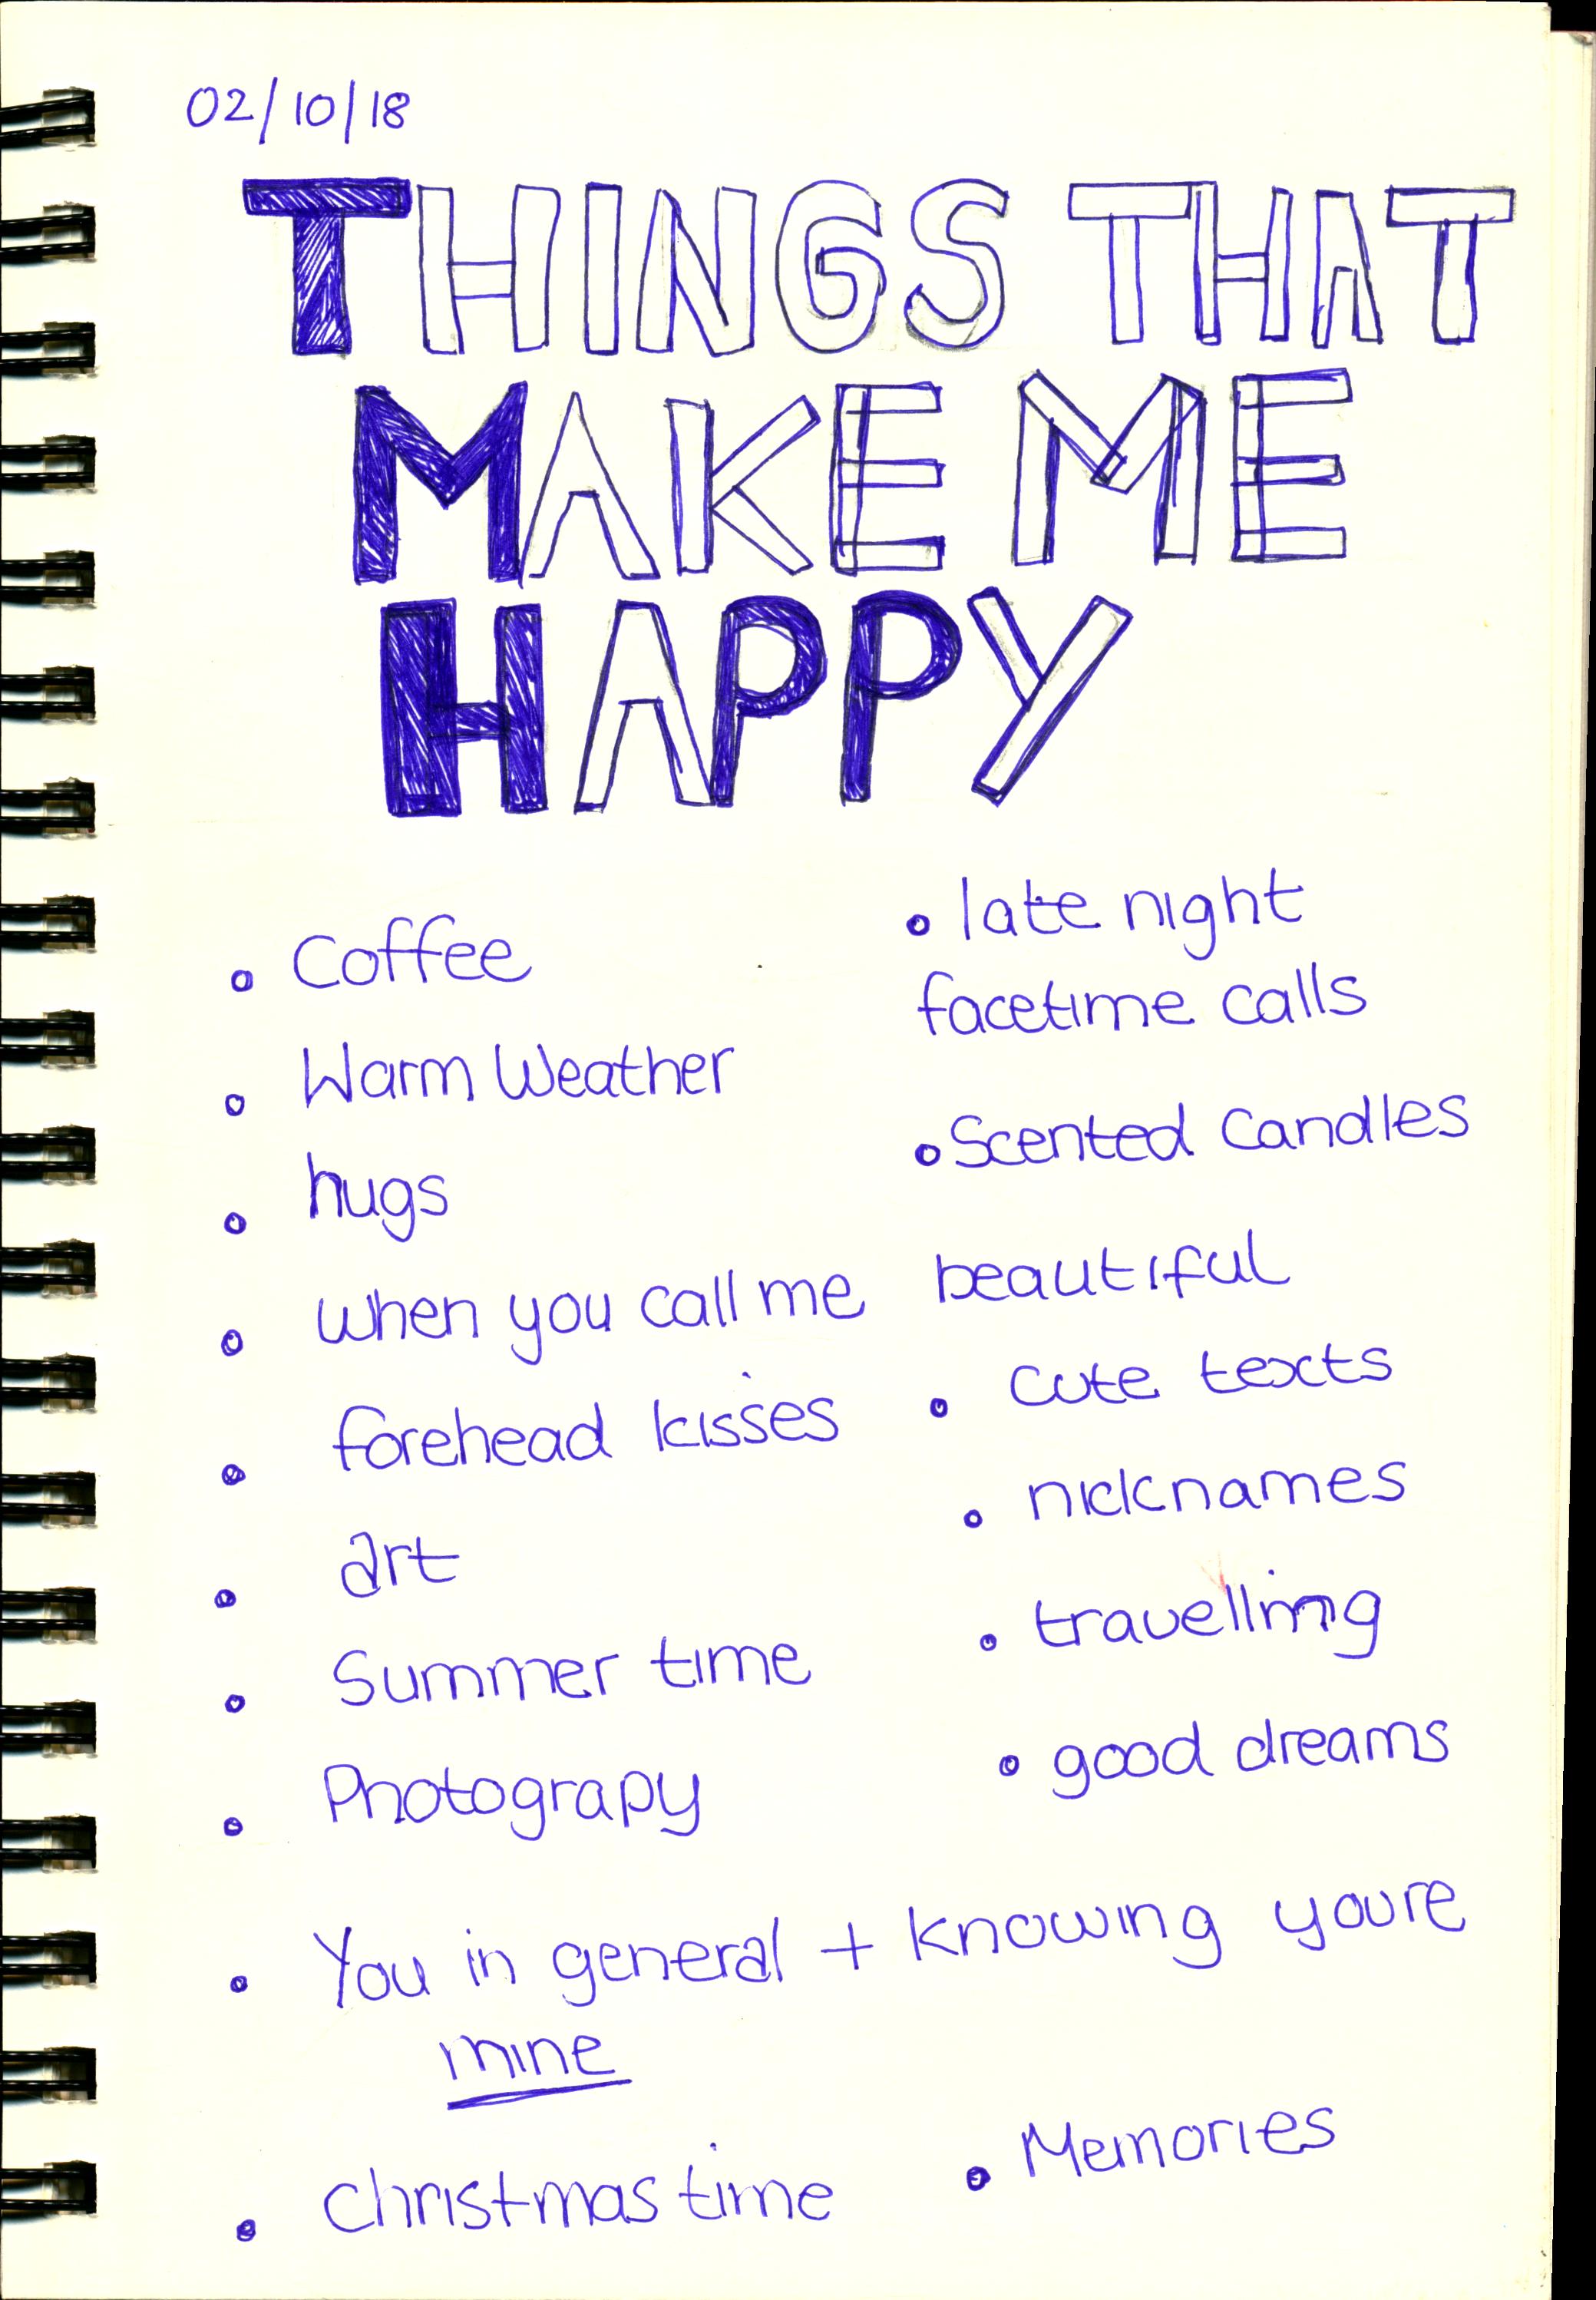 02/10/18
THINGS THAT
MAKE ME
HAPPY
• Coffee
• Warm Weather
• hugs
• when you call me beautiful
• forehead kisses
• art
• Summer time
• Photograpy
• late night
facetime calls
• Scented Candles
• cute texts
• nicknames
• travelling
• good dreams
• You in general + knowing youre
mine
• Christmas time
• Memories